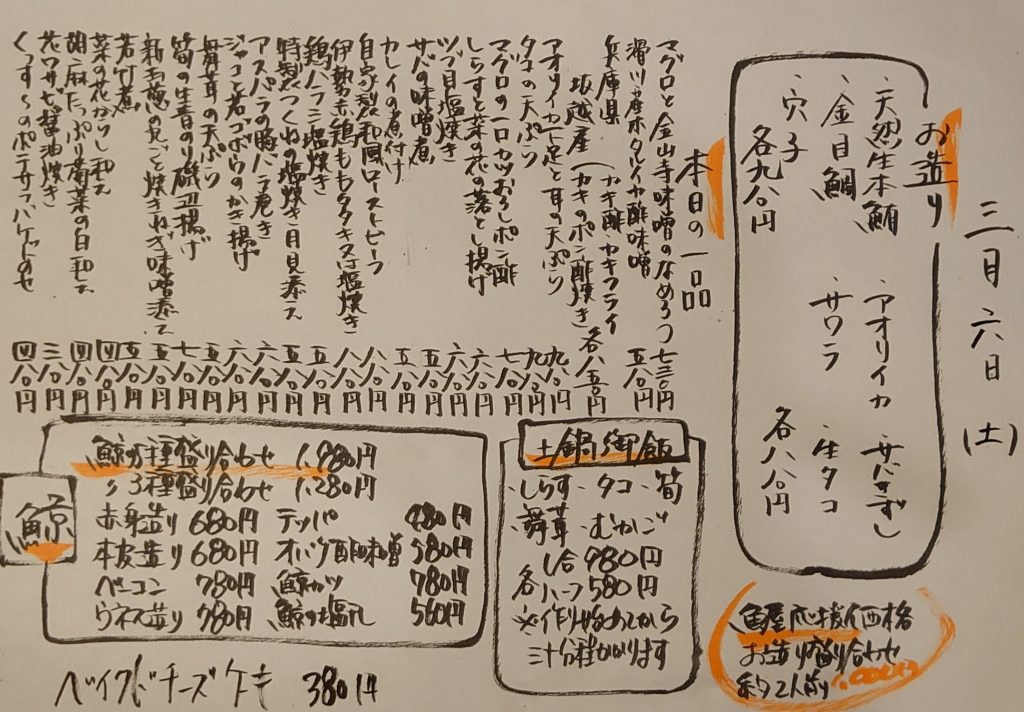 三月六日(土)
お造り
・天然生本鮪
・金目鯛
・穴子
各九八〇円
・アオリイカ
・サワラ
・サバきずし
・生タコ
各八八〇円
魚屋応援価格
お造り盛り合わせ
約2人前 1,000円
本日の一品
マグロと金山寺味噌のなめろう 七三〇円
滑川産ホタルイカ酢味噌 五八〇円
兵庫県坂越産(カキ酢・カキフライ
カキのポン酢焼き)各八五〇円
アオリイカ下足と耳の天ぷら 九八〇円
タコの天ぷら 九八〇円
マグロの一口カツおろしポン酢 七八〇円
しらすと菜の花の落とし揚げ 六八〇円
ツブ貝塩焼き 六八〇円
サバの味噌煮 五八〇円
カレイの煮付け 五八〇円
自家製和風ローストビーフ 八八〇円
伊勢赤鶏ももタタキ又は塩焼き 八八〇円
鶏ハラミ塩焼き 五八〇円
特製つくねの塩焼き 月見添え 五八〇円
アスパラの豚バラ巻き 六八〇円
ジャコと若ゴボウのかき揚げ 六八〇円
舞茸の天ぷら 五八〇円
筍の生青のり磯辺揚げ 七八〇円
新玉葱の丸ごと焼きねぎ味噌添え 五八〇円
若竹煮 五八〇円
菜の花からし和え 四八〇円
胡麻たっぷり菊菜の白和え 四八〇円
花ワサビ醤油漬き 三八〇円
くっす〜のポテサラ バケットのせ 四八〇円
土鍋御飯
・しらす・タコ・筍
・舞茸・むかご
各 1合980円
ハーフ580円
※作り始めてから
三十分程かかります
鯨
鯨5種盛り合わせ 1,980円
〃3種盛り合わせ 1,280円
赤身造り 680円 テッパ 480円
本皮造り 680円 オバケ酢味噌 580円
ベーコン 780円 鯨カツ 780円
ウネス造り 780円 鯨の塩汎 560円
ベイクドチーズケーキ 380円